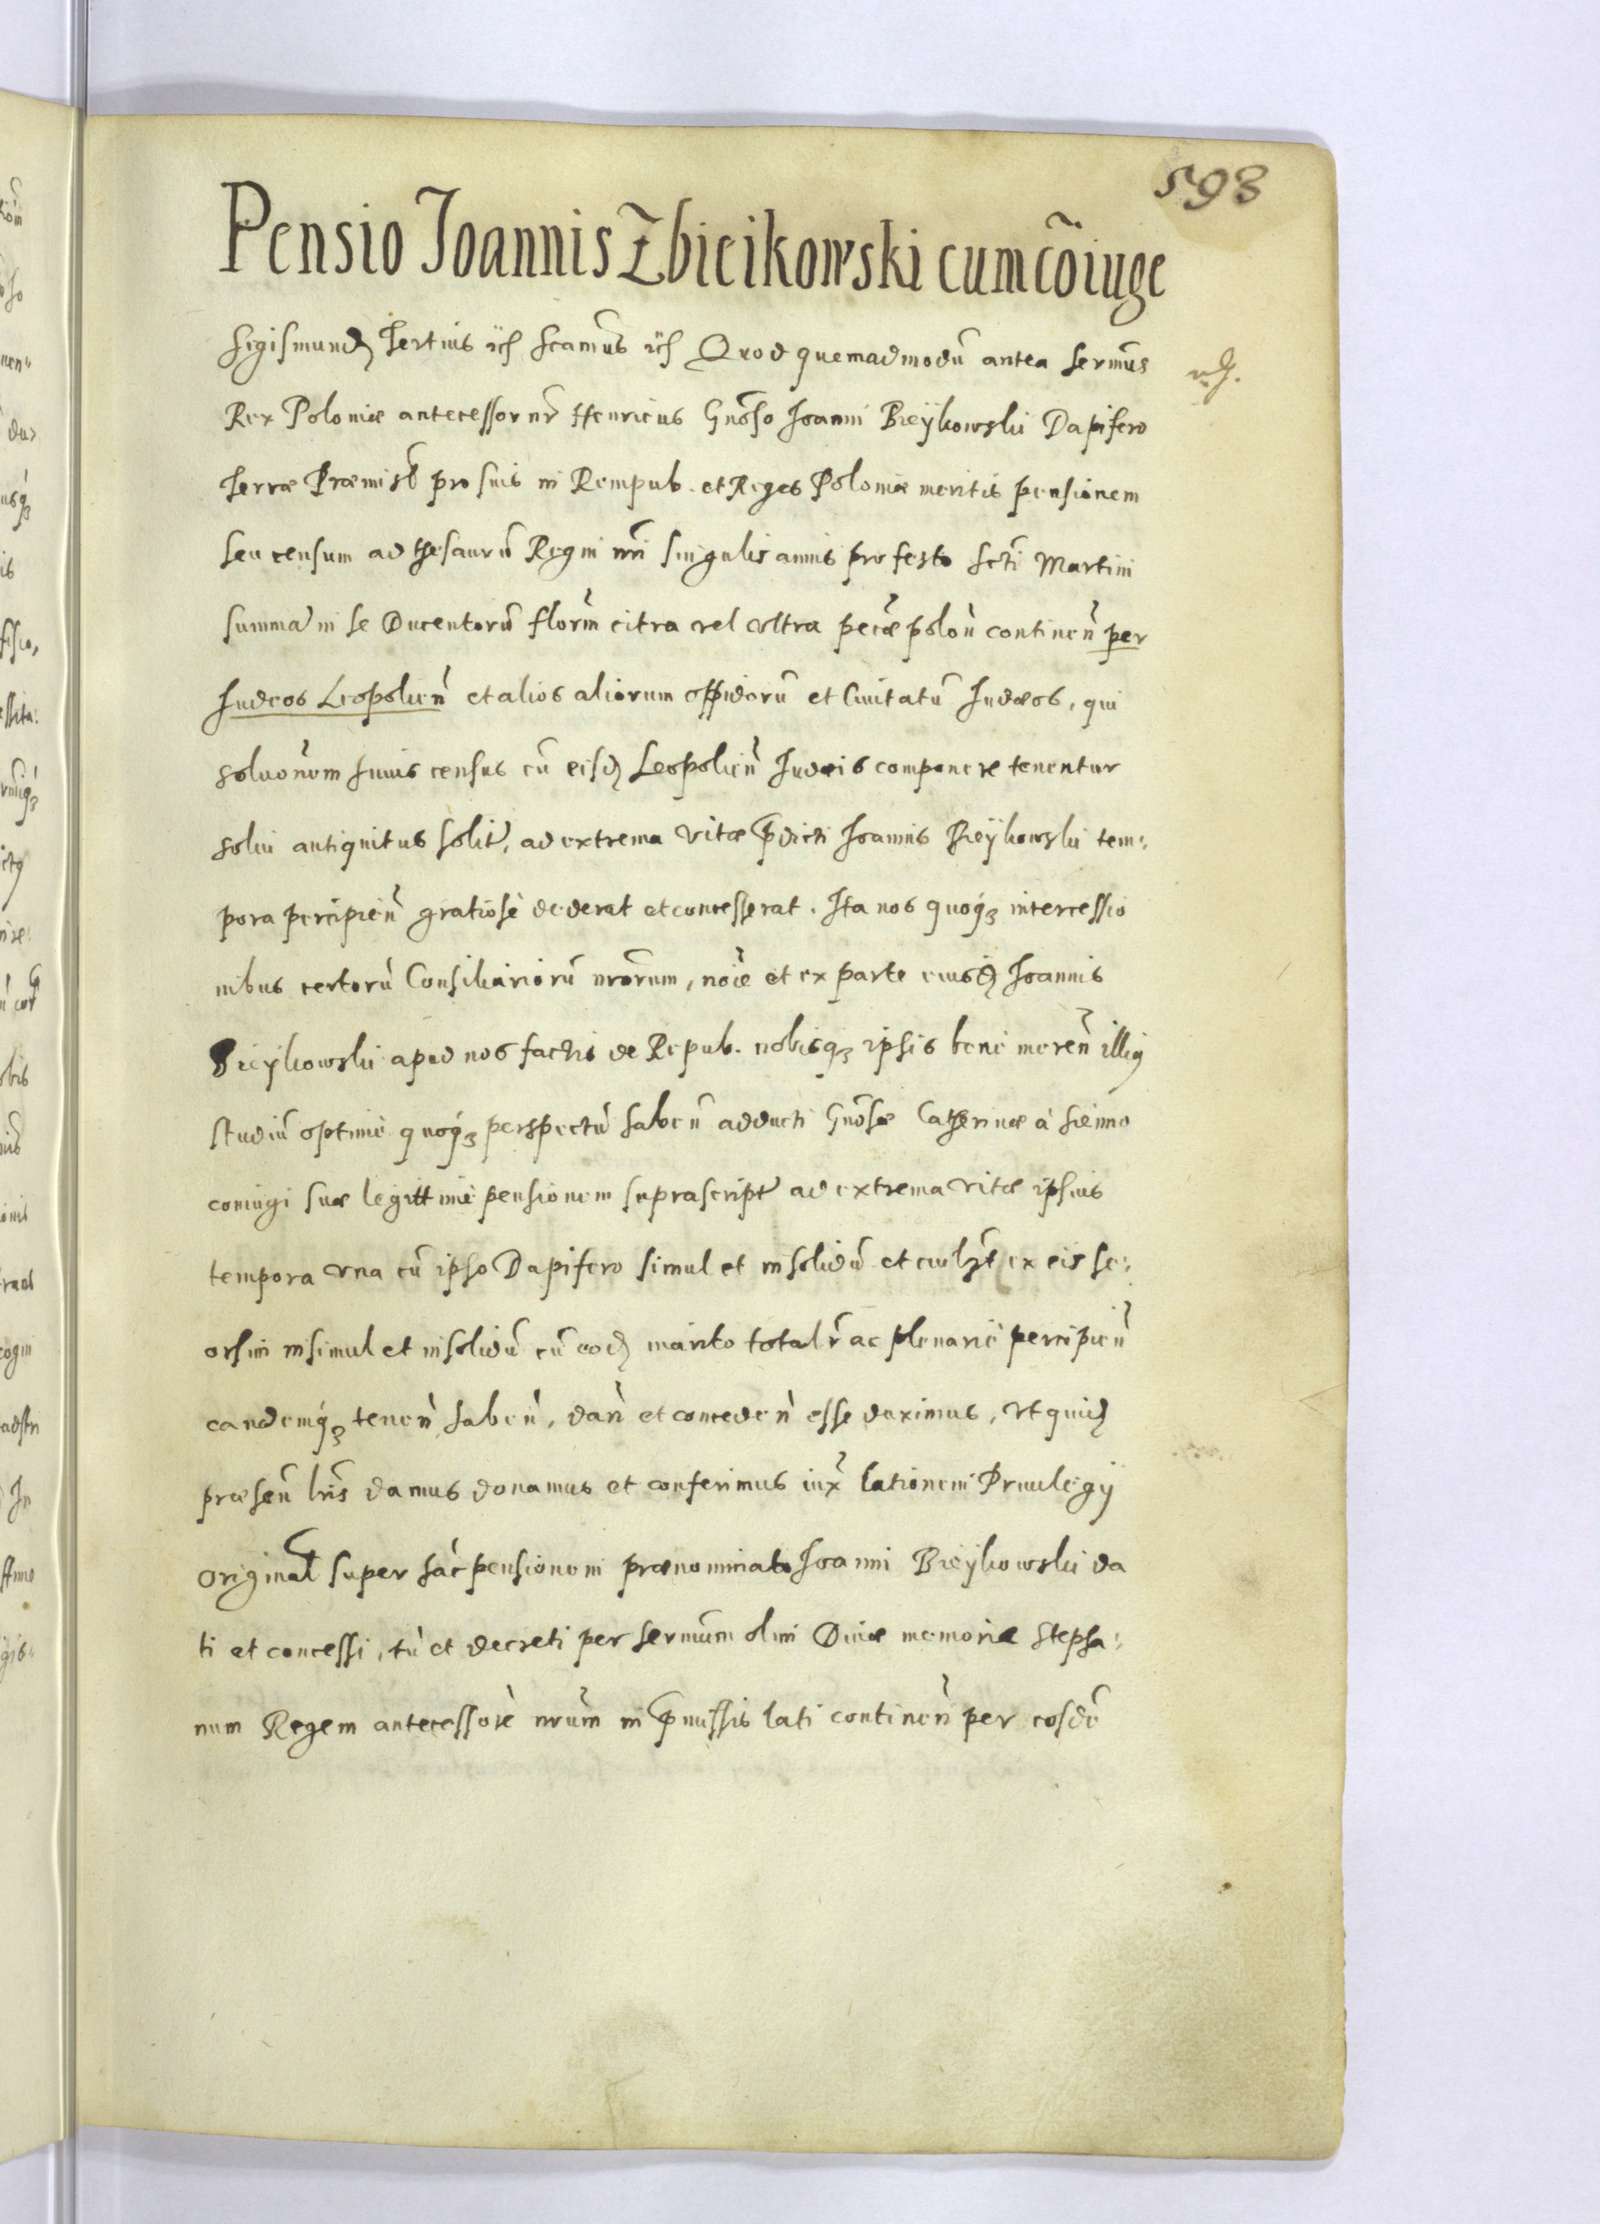 593
Pensio Joannis Zbieikowski cum cõiuge
Sigismund9 Tertius etc̃ scam̃us etc̃ Quod quemadmodũ antea Serm̃us
Rex Poloniæ antecessor nr̃ Henricus Gñoso Joanni Bieÿkowski Dapifero
Terræ Præmisl̃ pro suis in Rempub. et Reges Poloniæ meritis pensionem
seu censum ad thesaurũ Regni nrĩ̴ singulis annis pro festo Sctĩ̴ Martini
summã in se Ducentorũ florm̃ citra vel vltra pec̃æ poloñ continen̄ per
Judeos Leopolien̄ et alios aliorum oppidorũ et Ciuitatũ Judæos, qui
soluõnem huius census cũ eisd̃ Leopolien̄ Judæis componere tenentur
solui antiquitus solit̃, ad extrema vitæ p̃dicti Joannis Bieÿkowski tem:
pora percipien̄ gratiosè dederat et concesserat. Ita nos quoq3 intercessio
nibus certorũ Consiliariorũ nrõrum, noĩe et ex parte eiusd̃ Joannis
Bieÿkowski apud nos factis de Repub. nobisq3 ipsis bene meren̄ illi9
studiũ optimè quoq3 perspectũ haben̄ adducti Gñosæ Catherinæ à Sienno
coniugi suæ legittimè pensionem suprascript̃ ad extrema vitæ ipsius
tempora vna cũ ipso Dapifero simul et insolidũ et cuil3t̃ ex eis se:
orsim insimul et insolidũ cũ eod̃ marito totalr̃ ac plenariè percipien̄
eandemq3 tenen̄ haben̄, dan̄ et conceden̄ esse duximus, vt quid̃
præsen̄ lrĩs damus donamus et conferimus iux̃ lationem Priuilegÿ
original̃ super hãc pensionem prænominato Joanni Bieÿkowski da
ti et concessi, tũ et decreti per Sermũm olim Diuæ memoriæ Stepha:
num Regem antecessorẽ nrũm in p̃missis lati continen̄ per eosdẽ